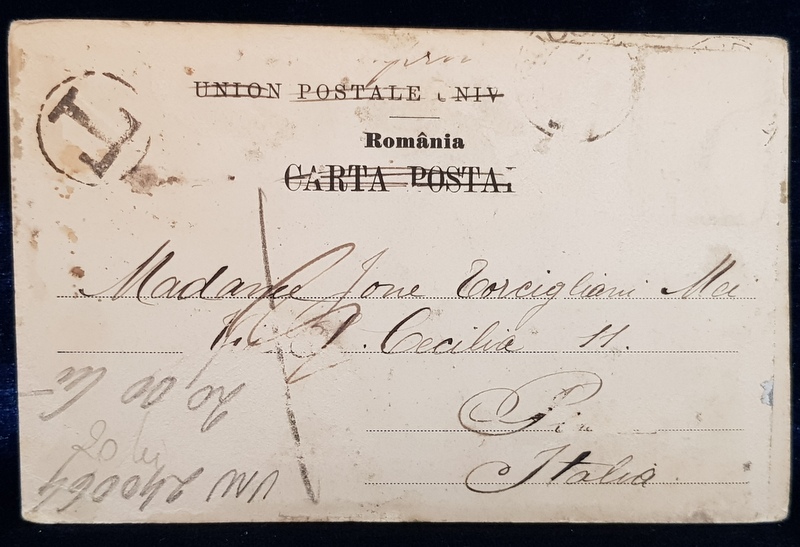 T
UNION POSTALE UNIV
România
CARTA POSTA
Madame Jone Torcigliani Mei
S. Cecilia 11.
Italia
20 00 lei
VNU 240064